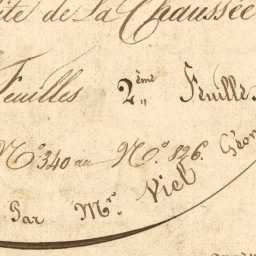 ite de La Chaussée
Feuilles 2ème Feuille.
N° 340 au N° 826.
Par Mr. Viel Géom